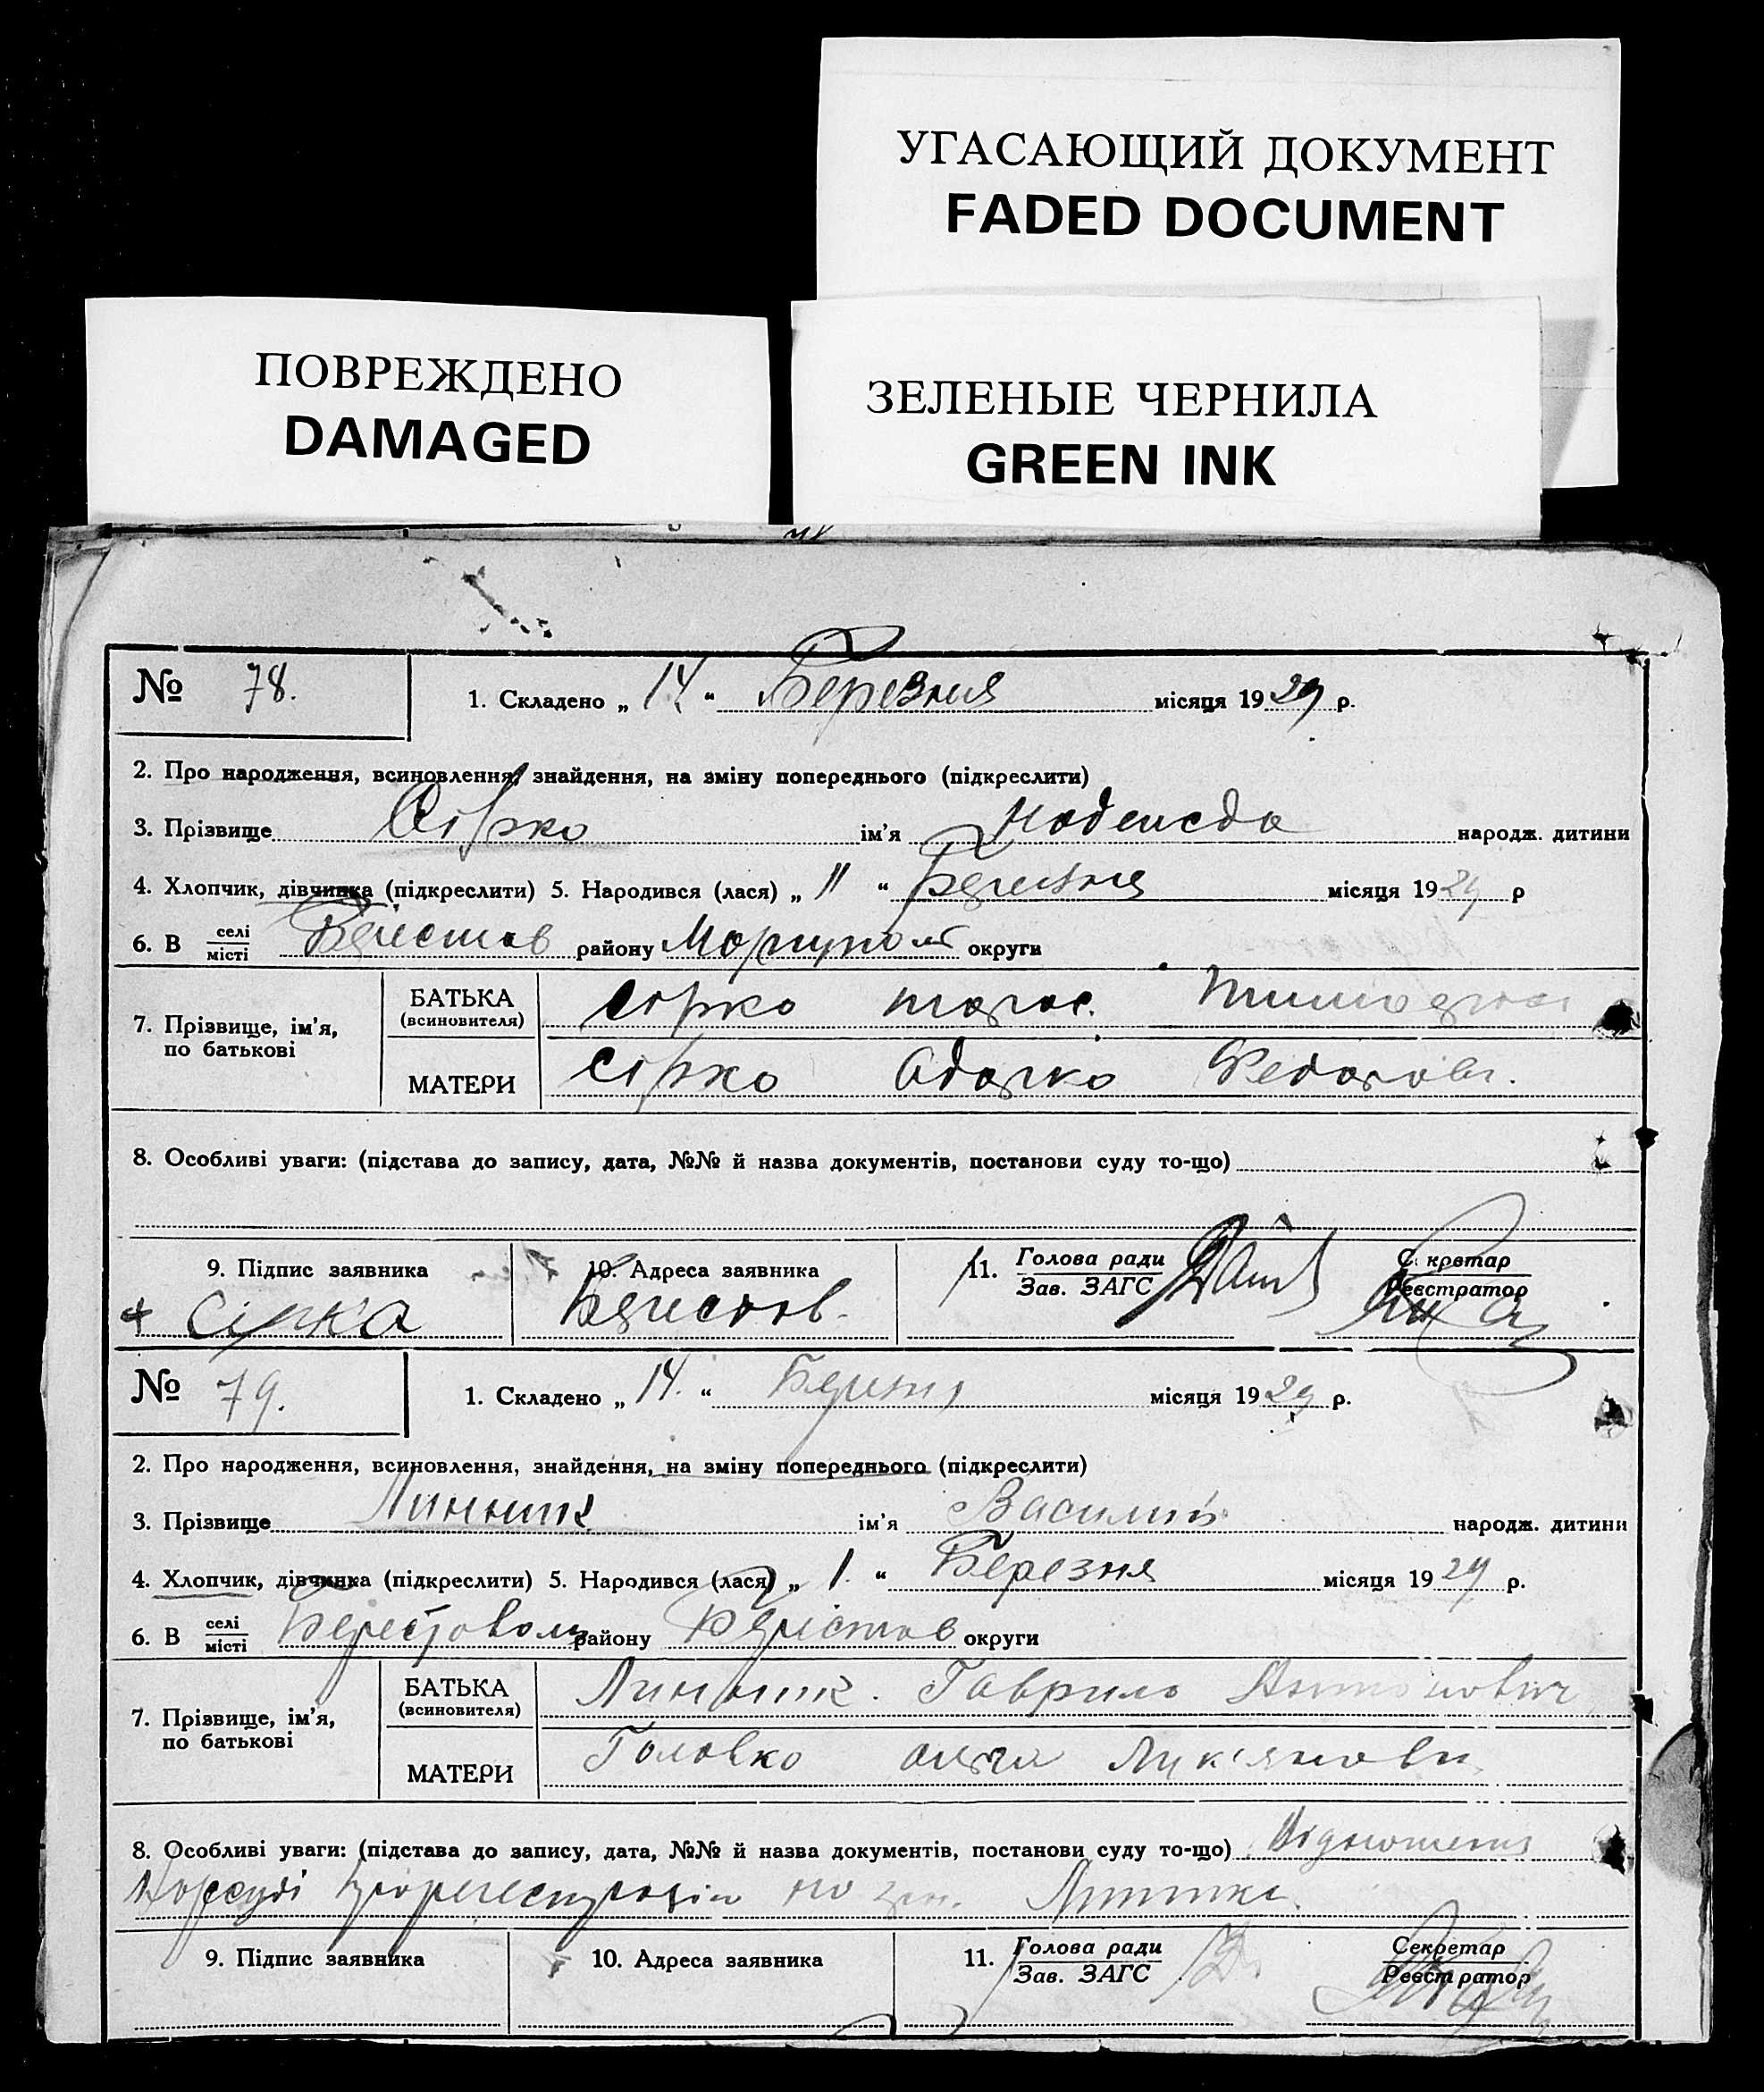 УГАСАЮЩИЙ ДОКУМЕНТ
FADED DOCUMENT
ПОВРЕЖДЕНО
DAMAGED
ЗЕЛЕНЫЕ ЧЕРНИЛА
GREEN INK
№ 78. 1. Складено „ 14 “ Березня місяця 1929 р.
2. Про народження, всиновлення, знайдення, на зміну попереднього (підкреслити)
3. Прізвище Сірко ім'я Надежда народж. дитини
4. Хлопчик, дівчинка (підкреслити) 5. Народився (лася) „ 11 “ Березня місяця 1929 р
6. В селі/місті Берестов району Мариупол округи
7. Прізвище, ім'я, по батькові
БАТЬКА (всиновителя) Сірко Тарас.
МАТЕРИ Сірко Одарка Федоровн.
8. Особливі уваги: (підстава до запису, дата, №№ й назва документів, постанови суду то-що)
9. Підпис заявника 10. Адреса заявника 11. Голова ради/Зав. ЗАГС Секретар/Реєстратор
+ Сірка Берестов.
№ 79. 1. Складено „ 14. “ Березня місяця 1929 р.
2. Про народження, всиновлення, знайдення, на зміну попереднього (підкреслити)
3. Прізвище Линник ім'я Василий народж. дитини
4. Хлопчик, дівчинка (підкреслити) 5. Народився (лася) „ 1. “ Березня місяця 1929 р.
6. В селі/місті Берестовом району Берестов округи
7. Прізвище, ім'я, по батькові
БАТЬКА (всиновителя) Линник. Гаврило Антонович
МАТЕРИ Головко Лук'яновн
8. Особливі уваги: (підстава до запису, дата, №№ й назва документів, постанови суду то-що) Відношення
9. Підпис заявника 10. Адреса заявника 11. Голова ради/Зав. ЗАГС Секретар/Реєстратор